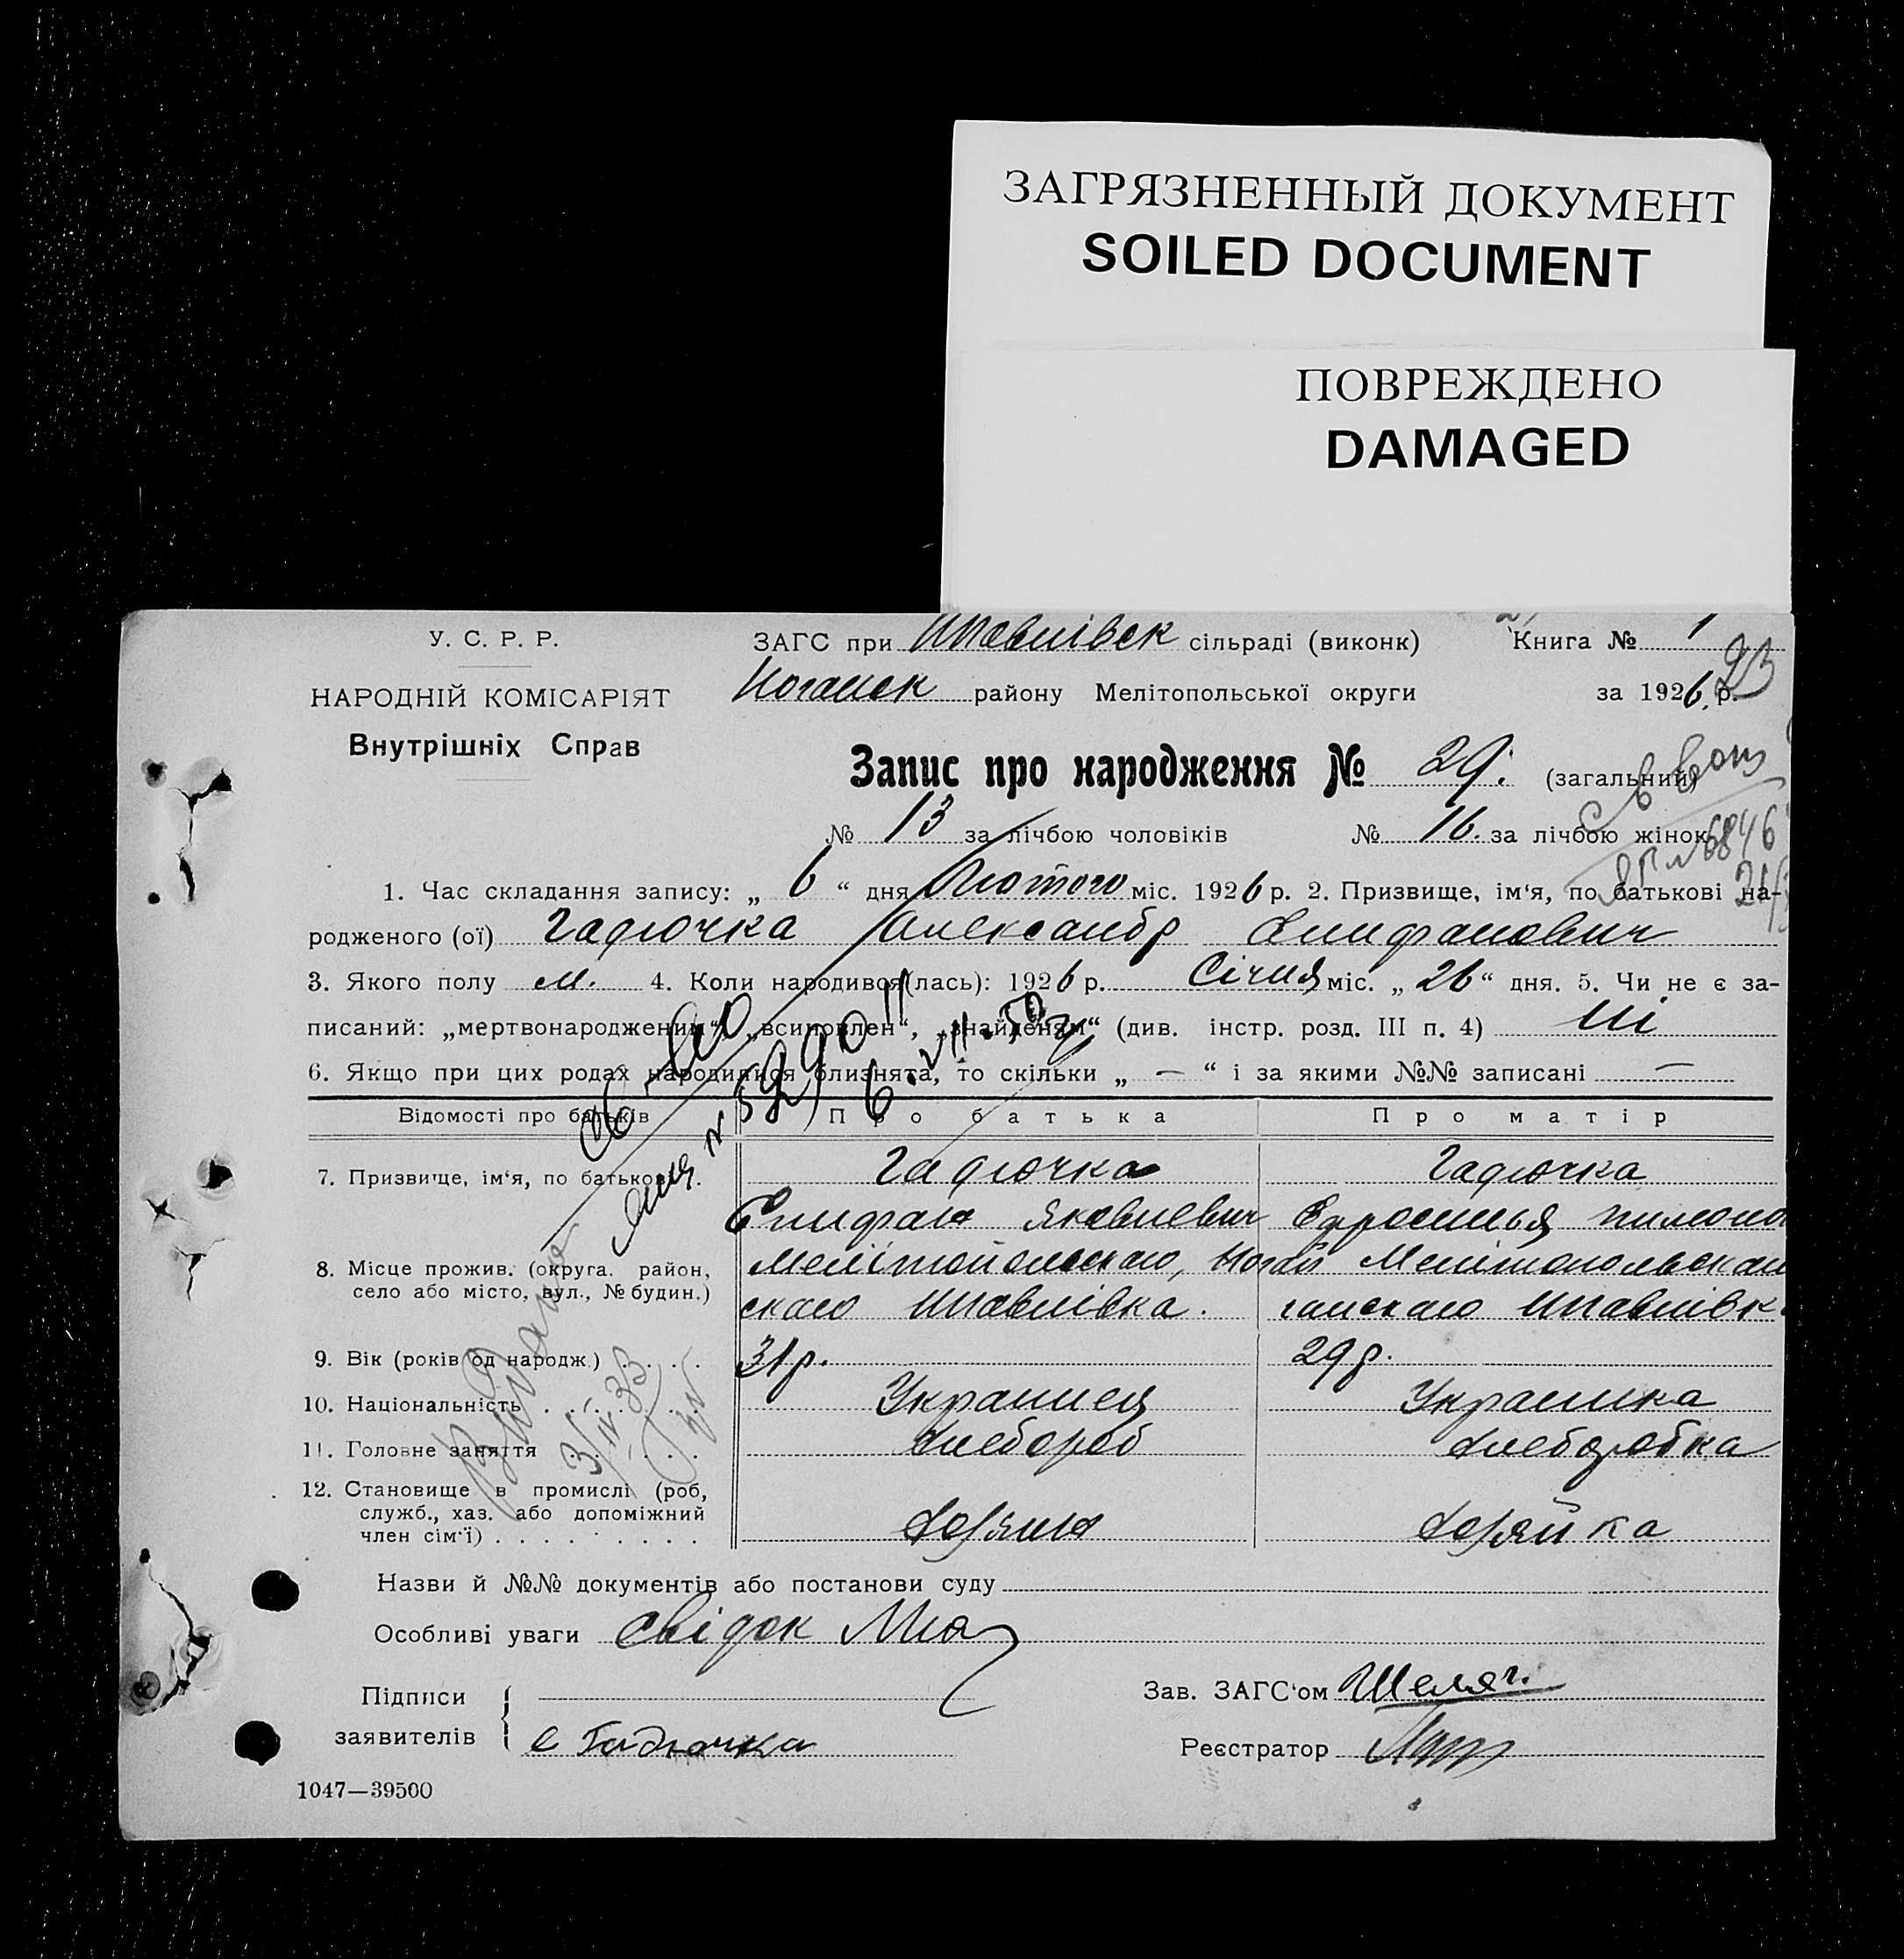 ЗАГРЯЗНЕННЫЙ ДОКУМЕНТ
SOILED DOCUMENT
ПОВРЕЖДЕНО
DAMAGED
У. С. Р. Р.
НАРОДНІЙ КОМІСАРІЯТ
Внутрішніх Справ
ЗАГС при Шпавлівск сільраді (виконк) Книга № 1
Ногайск району Мелітопольської округи за 1926 р.
23
Запис про народження № 29. (загальний)
№ 13 за лічбою чоловіків № 16. за лічбою жінок
1. Час складання запису: „ 6 “ дня Лютого міс. 1926 р. 2. Призвище, ім‘я, по батькові на-
родженого (ої) Гадючка Александр Епифанович
3. Якого полу м. 4. Коли народився(лась): 1926 р. Січня міс. „ 26 “ дня. 5. Чи не є за-
писаний: „мертвонароджений“, „всиновлен“, „знайденям“ (див. інстр. розд. III п. 4) Ні
6. Якщо при цих родах народилися близнята, то скільки „ — “ і за якими №№ записані —
Відомості про батьків Про батька Про матір
7. Призвище, ім‘я, по батькові . Гадючка Гадючка
Епифан Яковлевич Ефросинья
8. Місце прожив. (округа. район,
село або місто, вул., № будин.)
Мелітопольскаго, Ногай Мелітопольскаго
скаго Шпавлівка.
9. Вік (років од народж.) . . . . 31 р. 29 р.
10. Національність . . . . . Украинец Украинка
11. Головне заняття . . . . Хлебороб Хлеборобка
12. Становище в промислі (роб,
служб., хаз. або допоміжний
член сім‘ї) . . . . . . . . . Хозяин Хозяйка
Назви й №№ документів або постанови суду
Особливі уваги Свідок
Підписи
заявителів Е Гадючка
Зав. ЗАГС‘ом
Реєстратор
1047—39500